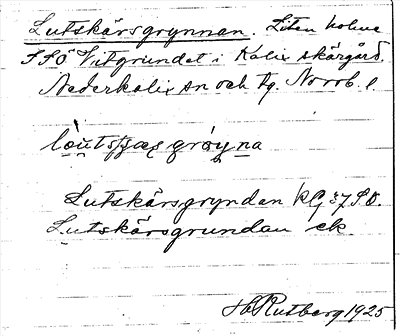 Lutskärsgrynnan. Liten holme
SSÖ Vitgrundet i Kalix skärgård.
Nederkalix sn och tg. Norrb. l.
Lutskärsgryndan
Lutskärsgrundan ek.
H Rutberg 1925